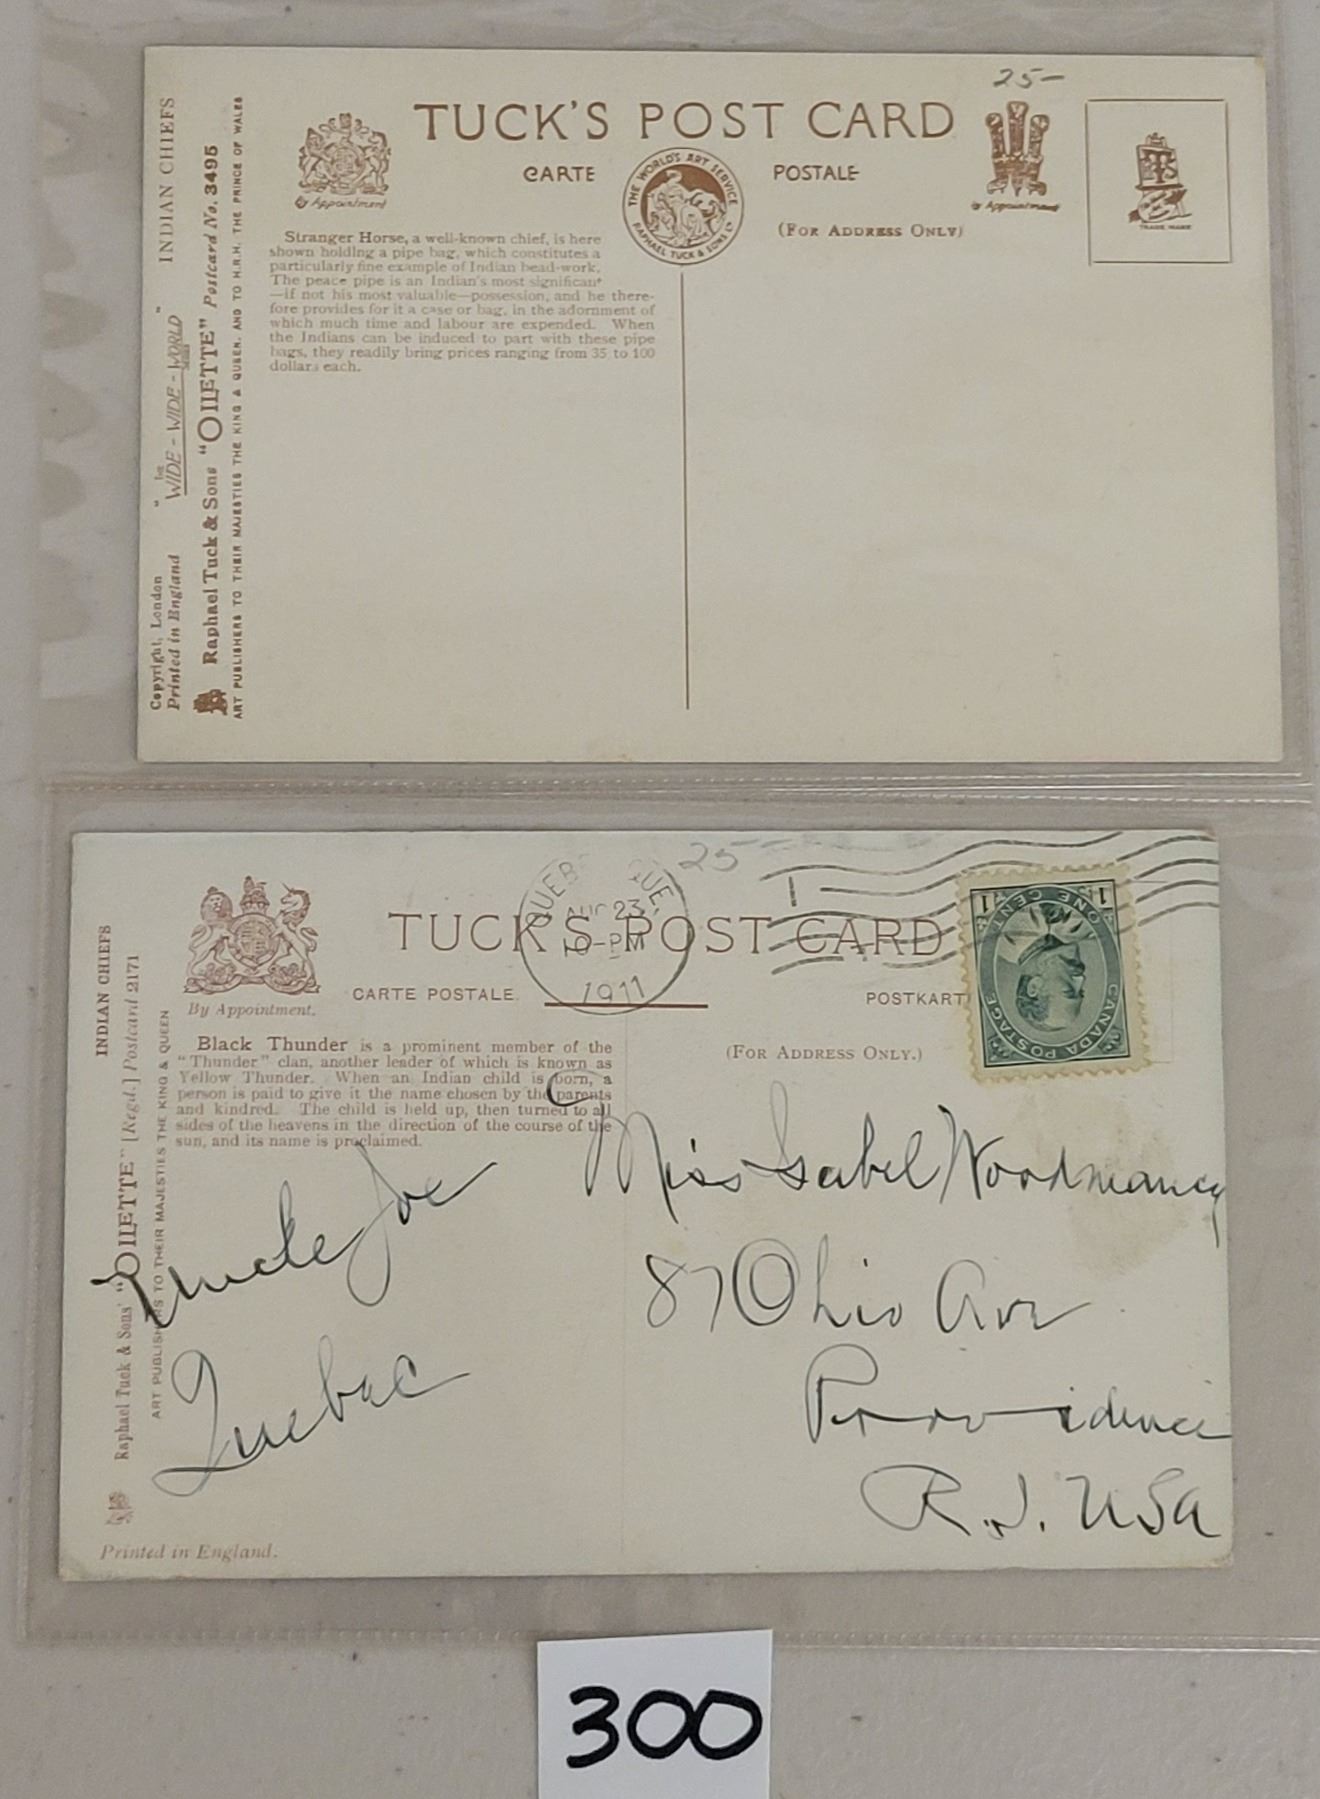 25-
TUCK'S POST CARD
CARTE POSTALE
THE WORLD'S ART SERVICE
RAPHAEL TUCK & SONS LD
By Appointment
By Appointment
(FOR ADDRESS ONLY)
TRADE MARK
Stranger Horse, a well-known chief, is here
shown holding a pipe bag, which constitutes a
particularly fine example of Indian bead-work.
The peace pipe is an Indian's most significant
—if not his most valuable—possession, and he there-
fore provides for it a case or bag, in the adornment of
which much time and labour are expended. When
the Indians can be induced to part with these pipe
bags, they readily bring prices ranging from 35 to 100
dollars each.
Copyright, London "THE WIDE-WIDE-WORLD SERIES" INDIAN CHIEFS
Printed in England
Raphael Tuck & Sons "OILETTE" Postcard No. 3495
ART PUBLISHERS TO THEIR MAJESTIES THE KING & QUEEN, AND TO H.R.H. THE PRINCE OF WALES
25-
QUEB QUE.
AUG 23
10-PM
1911
TUCK'S POST CARD
By Appointment.
CARTE POSTALE.
POSTKART
(FOR ADDRESS ONLY.)
CANADA POSTAGE
ONE CENT
1 1
Black Thunder is a prominent member of the
"Thunder" clan, another leader of which is known as
Yellow Thunder. When an Indian child is born, a
person is paid to give it the name chosen by the parents
and kindred. The child is held up, then turned to all
sides of the heavens in the direction of the course of the
sun, and its name is proclaimed.
INDIAN CHIEFS
Raphael Tuck & Sons' "OILETTE" [Regd.] Postcard 2171
ART PUBLISHERS TO THEIR MAJESTIES THE KING & QUEEN
Printed in England.
Uncle Joe
Quebec
Miss Isabel Woodmancy
87 Ohio Ave
Providence
R.I. USA
300